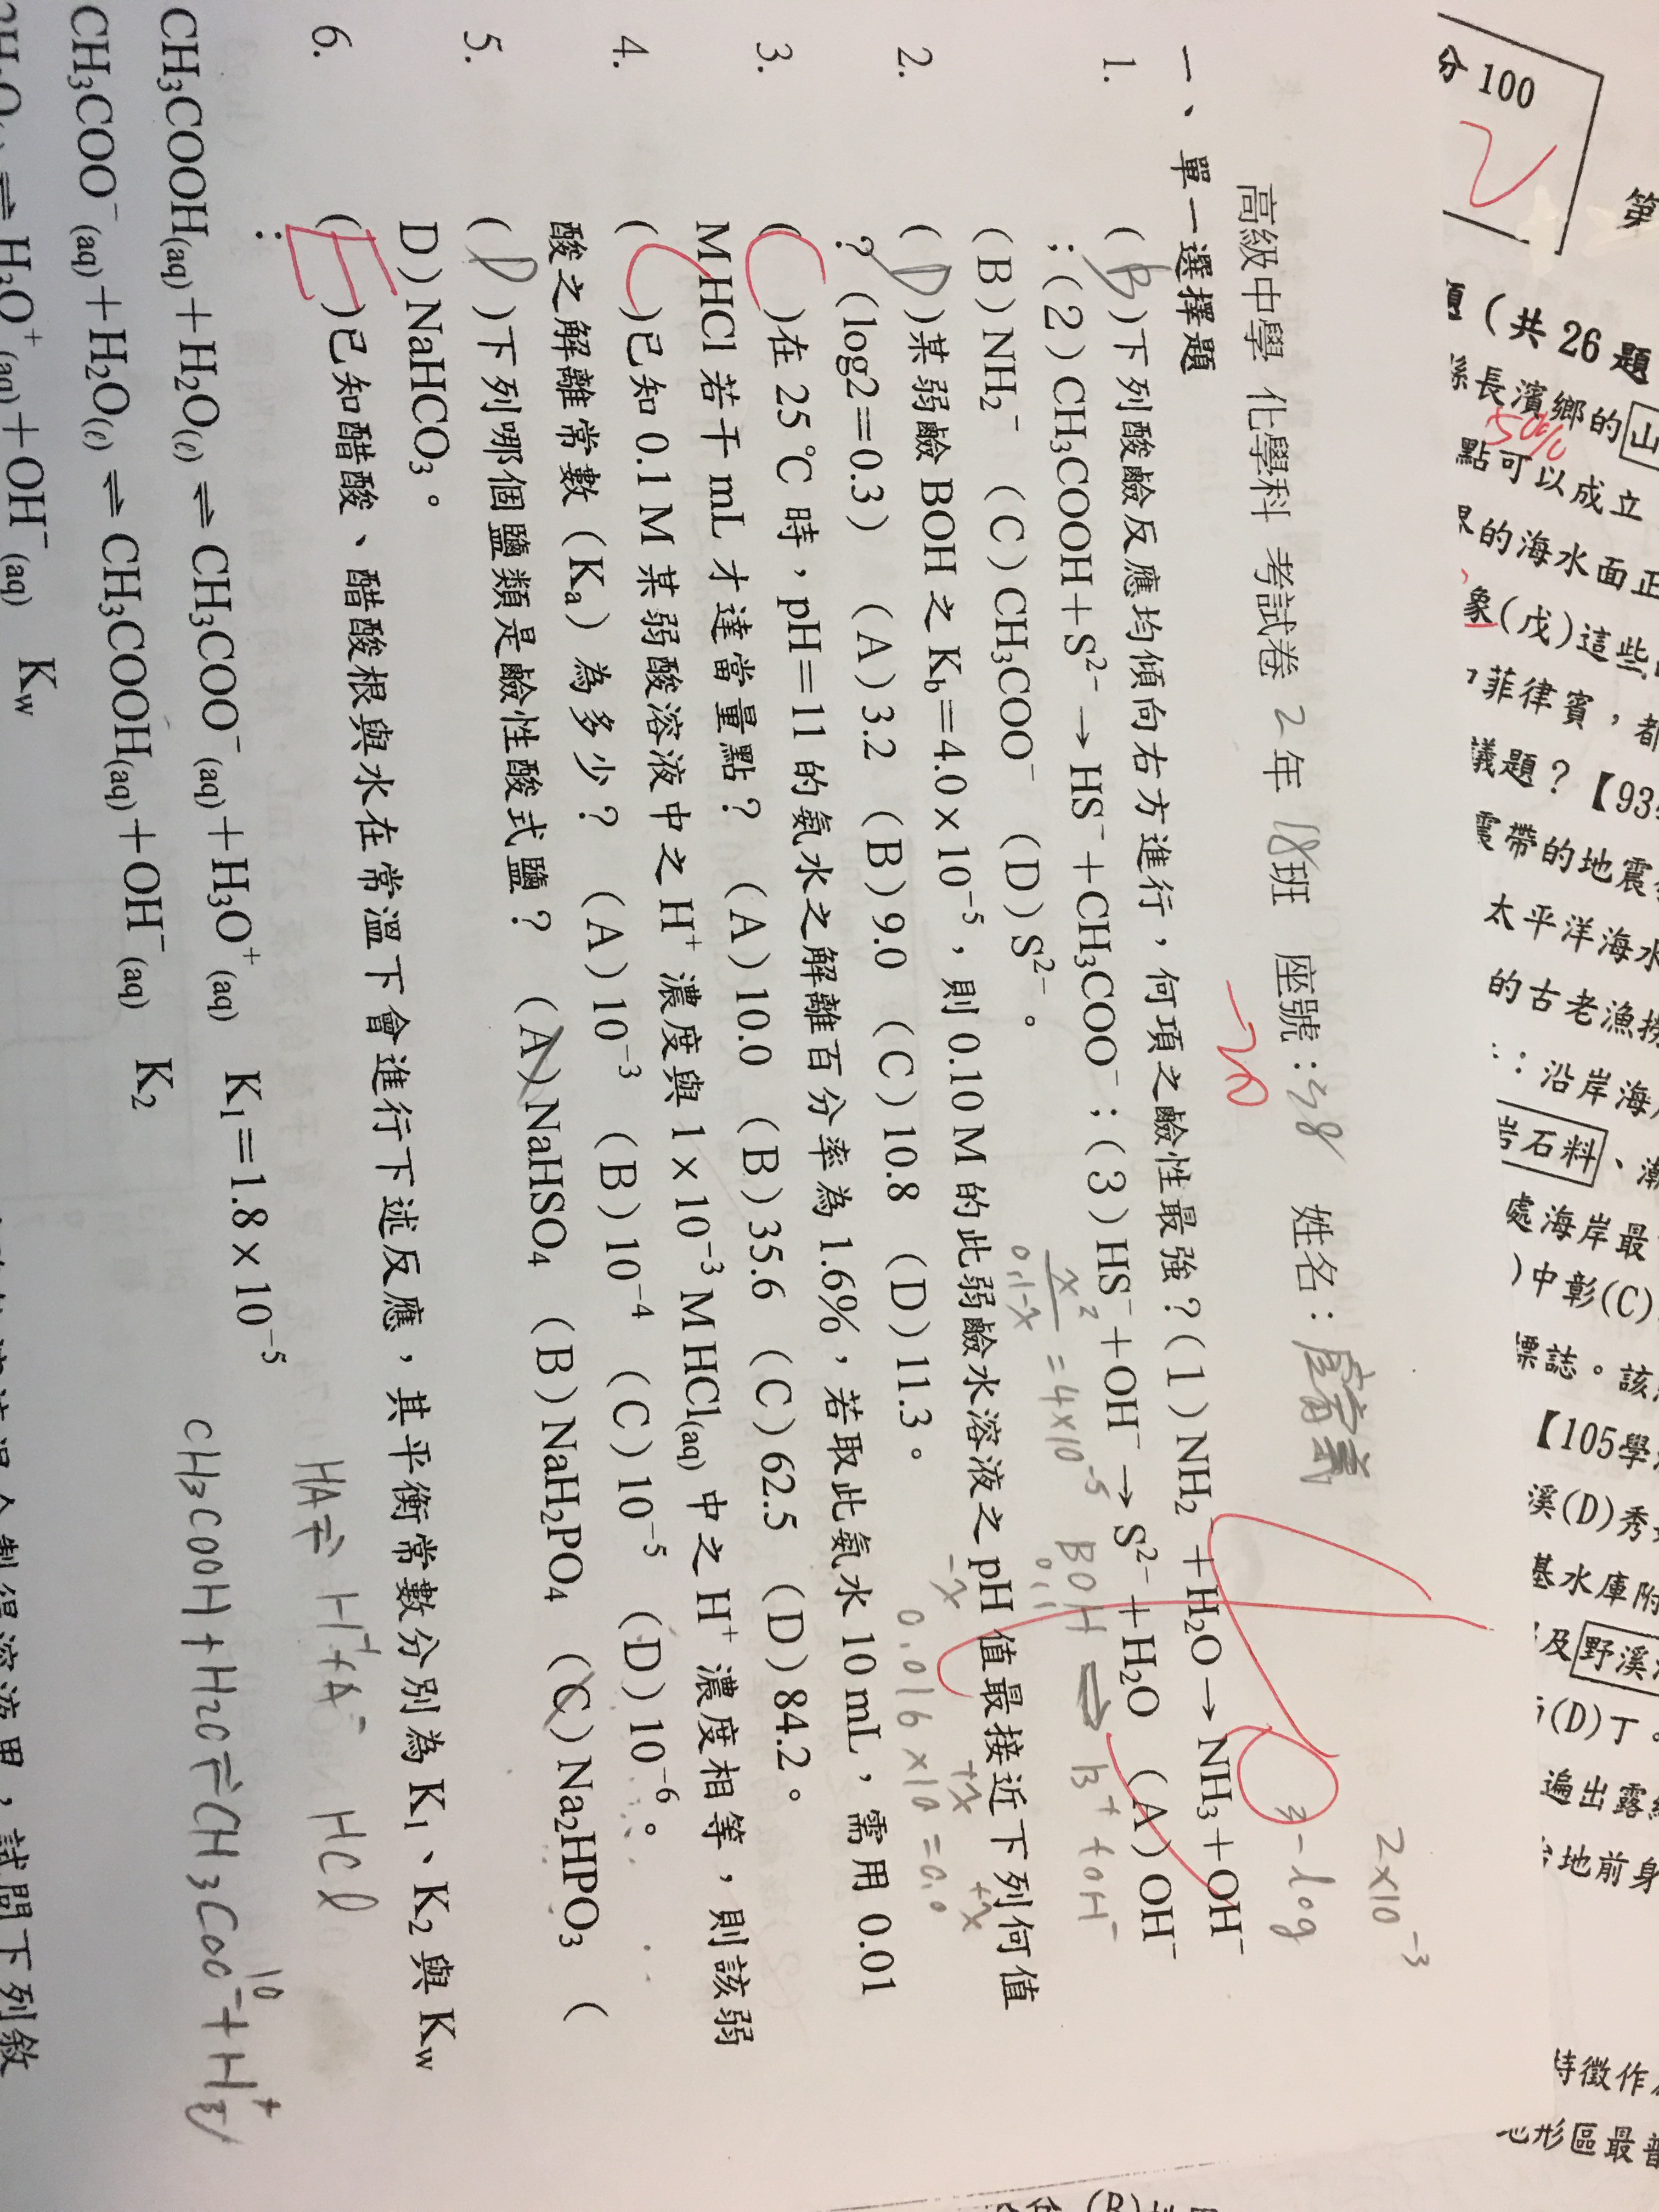 高級中學 化學科 考試卷 2 年 18班 座號：38 姓名：
-20
一、單一選擇題
1. (B)下列酸鹼反應均傾向右方進行，何項之鹼性最強？(1)NH₂⁻＋H₂O→NH₃＋OH⁻
；(2)CH₃COOH＋S²⁻→HS⁻＋CH₃COO⁻；(3)HS⁻＋OH⁻→S²⁻＋H₂O (A)OH⁻
(B)NH₂⁻ (C)CH₃COO⁻ (D)S²⁻。
2. (D)某弱鹼 BOH 之 K_b＝4.0×10⁻⁵，則 0.10 M 的此弱鹼水溶液之 pH 值最接近下列何值
？(log2＝0.3) (A)3.2 (B)9.0 (C)10.8 (D)11.3。
3. (C)在 25 ℃ 時，pH＝11 的氨水之解離百分率為 1.6%，若取此氨水 10 mL，需用 0.01
M HCl 若干 mL 才達當量點？ (A)10.0 (B)35.6 (C)62.5 (D)84.2。
4. (C)已知 0.1 M 某弱酸溶液中之 H⁺ 濃度與 1×10⁻³ M HCl(aq) 中之 H⁺ 濃度相等，則該弱
酸之解離常數（Kₐ）為多少？ (A)10⁻³ (B)10⁻⁴ (C)10⁻⁵ (D)10⁻⁶。
5. (D)下列哪個鹽類是鹼性酸式鹽？ (A)NaHSO₄ (B)NaH₂PO₄ (C)Na₂HPO₃ (
D)NaHCO₃。
6. (E)已知醋酸、醋酸根與水在常溫下會進行下述反應，其平衡常數分別為 K₁、K₂ 與 K_w
：
CH₃COOH(aq)＋H₂O(ℓ) ⇌ CH₃COO⁻(aq)＋H₃O⁺(aq) K₁＝1.8×10⁻⁵
CH₃COO⁻(aq)＋H₂O(ℓ) ⇌ CH₃COOH(aq)＋OH⁻(aq) K₂
H₃O⁺(aq)＋OH⁻(aq) K_w
2×10⁻³
3-log
x²
0.1-x
=4×10⁻⁵
BOH ⇌ B⁺+OH⁻
0.1
-x +x +x
0.016×10=0.0
HA⇌H⁺+A⁻ HCl
CH₃COOH+H₂O⇌CH₃COO⁻+H₃
10
分 100
第
(共 26 題
長濱鄉的山
50%
點可以成立
的海水面正
象(戊)這些
菲律賓，都
議題？【93
帶的地震
太平洋海水
的古老漁
：沿岸海
石料、
處海岸最
)中彰(C)
標誌。該
【105學
溪(D)秀
基水庫附
及野溪
(D)丁。
遍出露
地前身
特徵作
形區最普